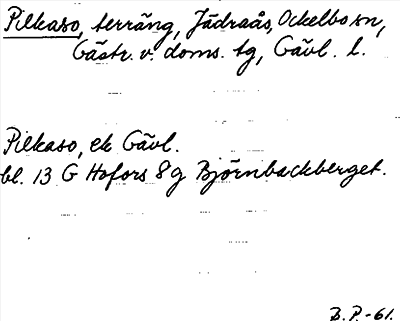 Pilkaso, terräng, Jädraås, Ockelbo sn,
Gästr. v. doms. tg, Gävl. l.
Pilkaso, ek Gävl.
bl. 13 G Hofors 8 g Björnbackberget.
B.P.-61.